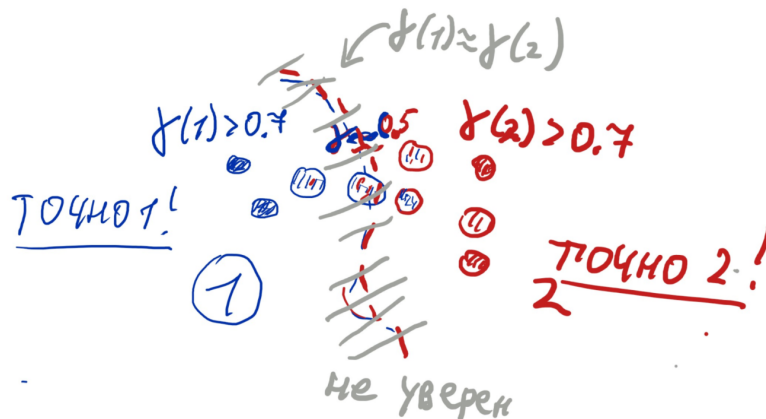 γ(1)≈γ(2)
γ(1)>0.7
γ≈0.5
γ(2)>0.7
ТОЧНО 1!
1
ТОЧНО 2!
2
не уверен